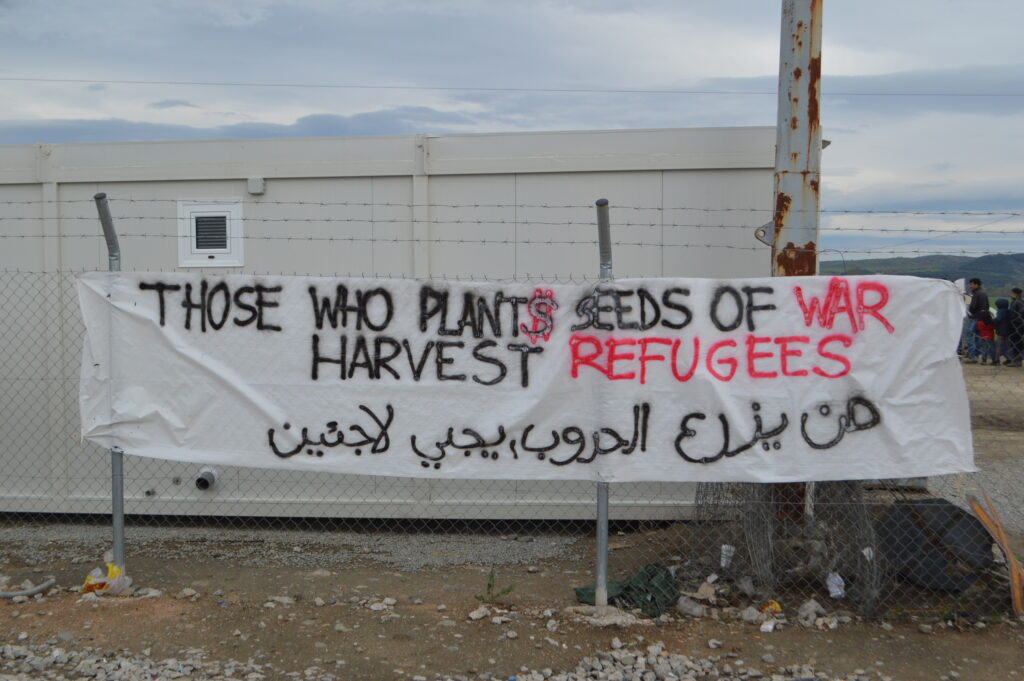 THOSE WHO PLANT$ SEEDS OF WAR
HARVEST REFUGEES
من يزرع الحروب, يجني لاجئين